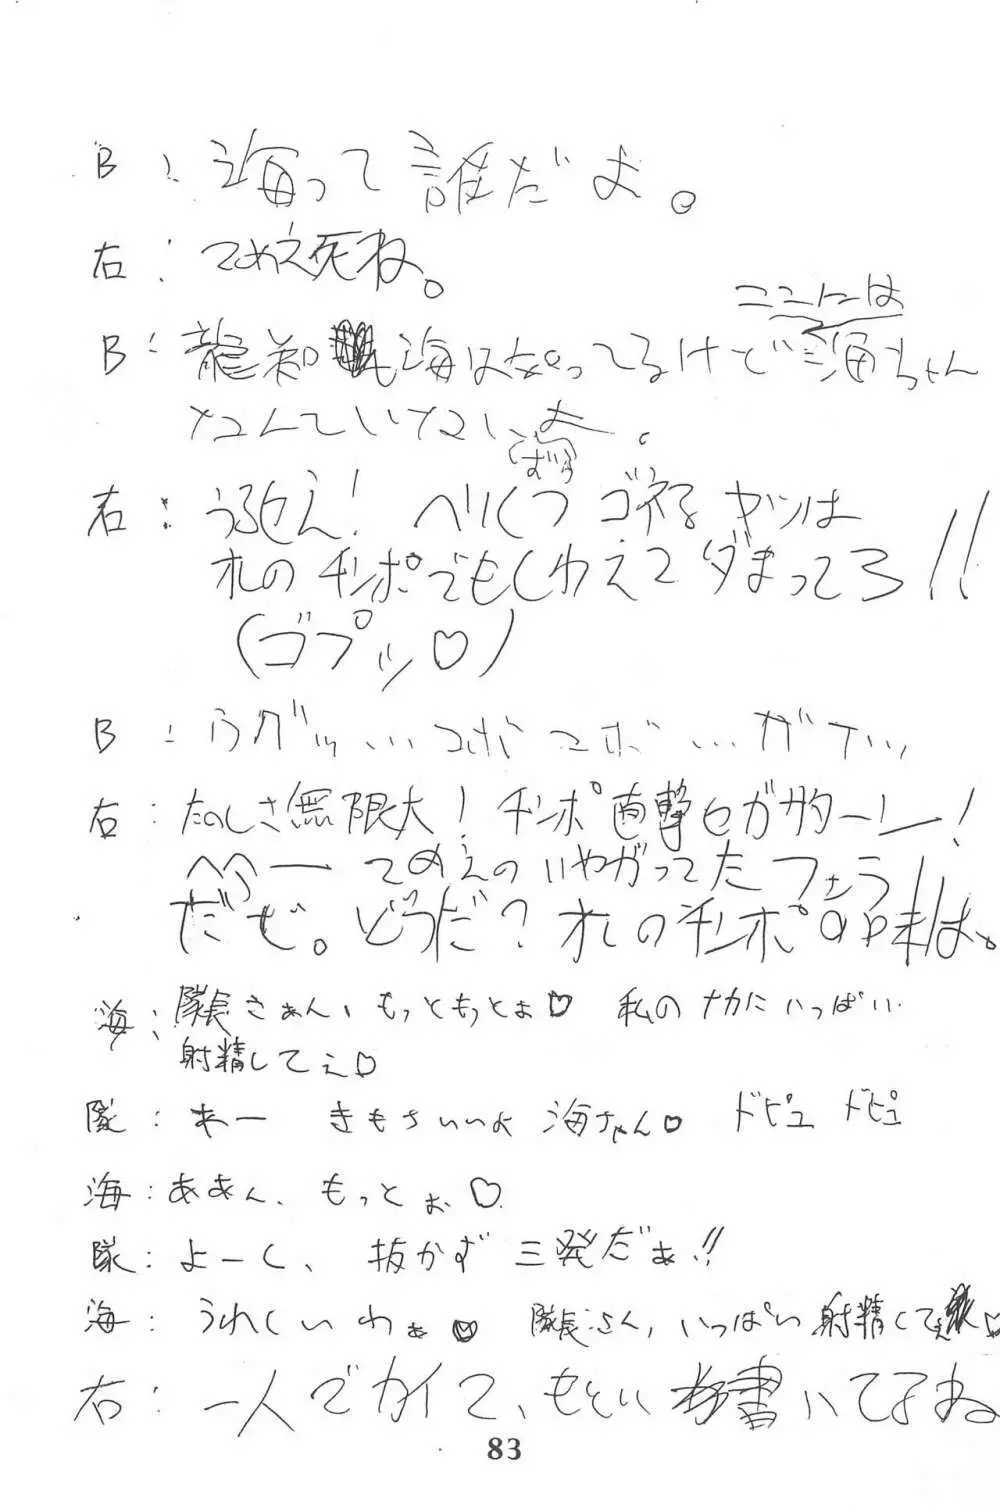 B：海って誰だよ。
右：てめえ死ね。
ここには
B：海はなってるけど海ちゃん
なんていないよ。
右：うるせえ！ へりくつ ゴネる ヤツは
オレの チンポでもくわえて ダまってろ!!
(ゴプッ♡)
B：ウグッ…
右：たのしさ無限大！チンポ直撃セガサターン！
へへー てめえの いやがってた フェラ
だぜ。どうだ？オレのチンポの味は。
海：隊長さぁん、もっともっとぉ♡ 私のナカにいっぱい
射精してぇ♡
隊：きもちいいよ 海ちゃん♡ ドピュ ドピュ
海：ああん、もっとぉ♡
隊：よーし、抜かず三発だぁ!!
海：うれしいわぁ♡ 隊長さん、いっぱい射精して♡
右：一人でカイて、もとい 書いてるよね
83